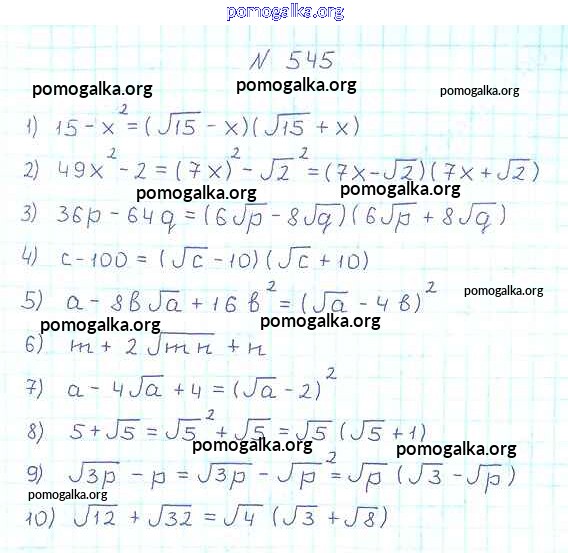 pomogalka.org
N 545
pomogalka.org pomogalka.org pomogalka.org
1) 15 - x² = (√15 - x)(√15 + x)
2) 49x² - 2 = (7x)² - √2² = (7x - √2)(7x + √2)
pomogalka.org pomogalka.org
3) 36p - 64q = (6√p - 8√q)(6√p + 8√q)
4) c - 100 = (√c - 10)(√c + 10)
5) a - 8b√a + 16b² = (√a - 4b)²
pomogalka.org
pomogalka.org pomogalka.org
6) m + 2√mn + n
7) a - 4√a + 4 = (√a - 2)²
8) 5 + √5 = √5² + √5 = √5 (√5 + 1)
pomogalka.org pomogalka.org
9) √3p - p = √3p - √p² = √p (√3 - √p)
pomogalka.org
10) √12 + √32 = √4 (√3 + √8)